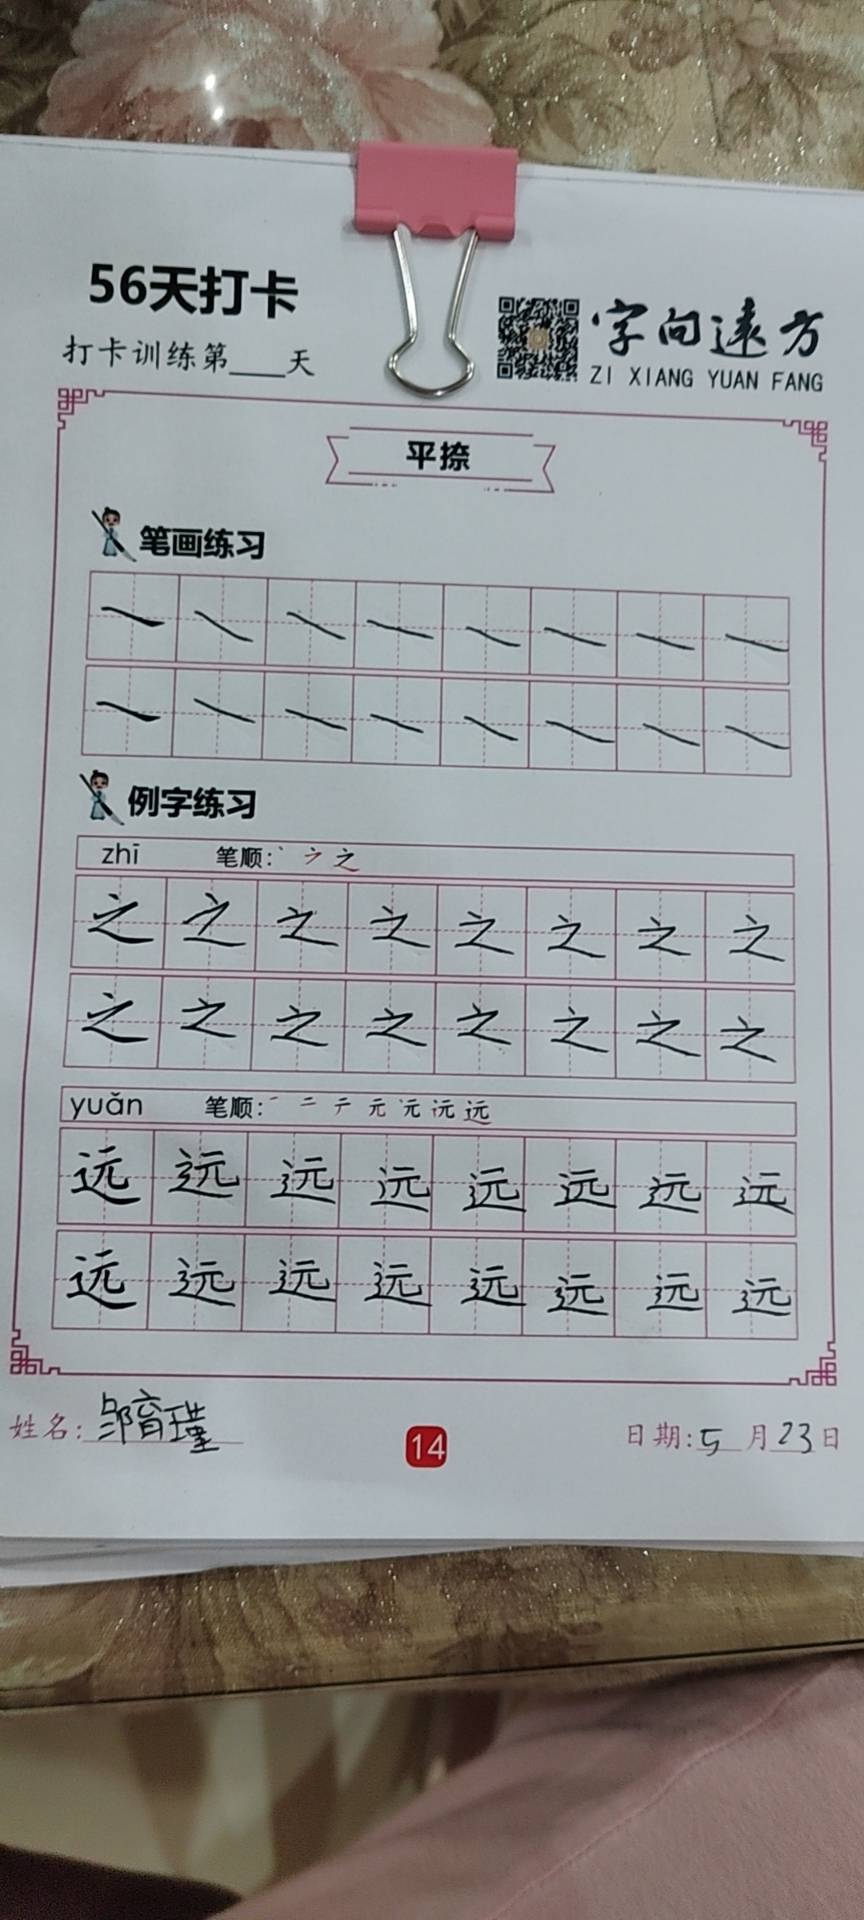 56天打卡
打卡训练第____天
字向远方
ZI XIANG YUAN FANG
平捺
笔画练习
例字练习
zhī 笔顺: 丶 ㇇ 之
之 之 之 之 之 之 之 之
之 之 之 之 之 之 之 之
yuǎn 笔顺: 一 二 テ 元 元 远 远
远 远 远 远 远 远 远 远
远 远 远 远 远 远 远 远
姓名: 邹育瑾
14
日期: 5 月 23 日